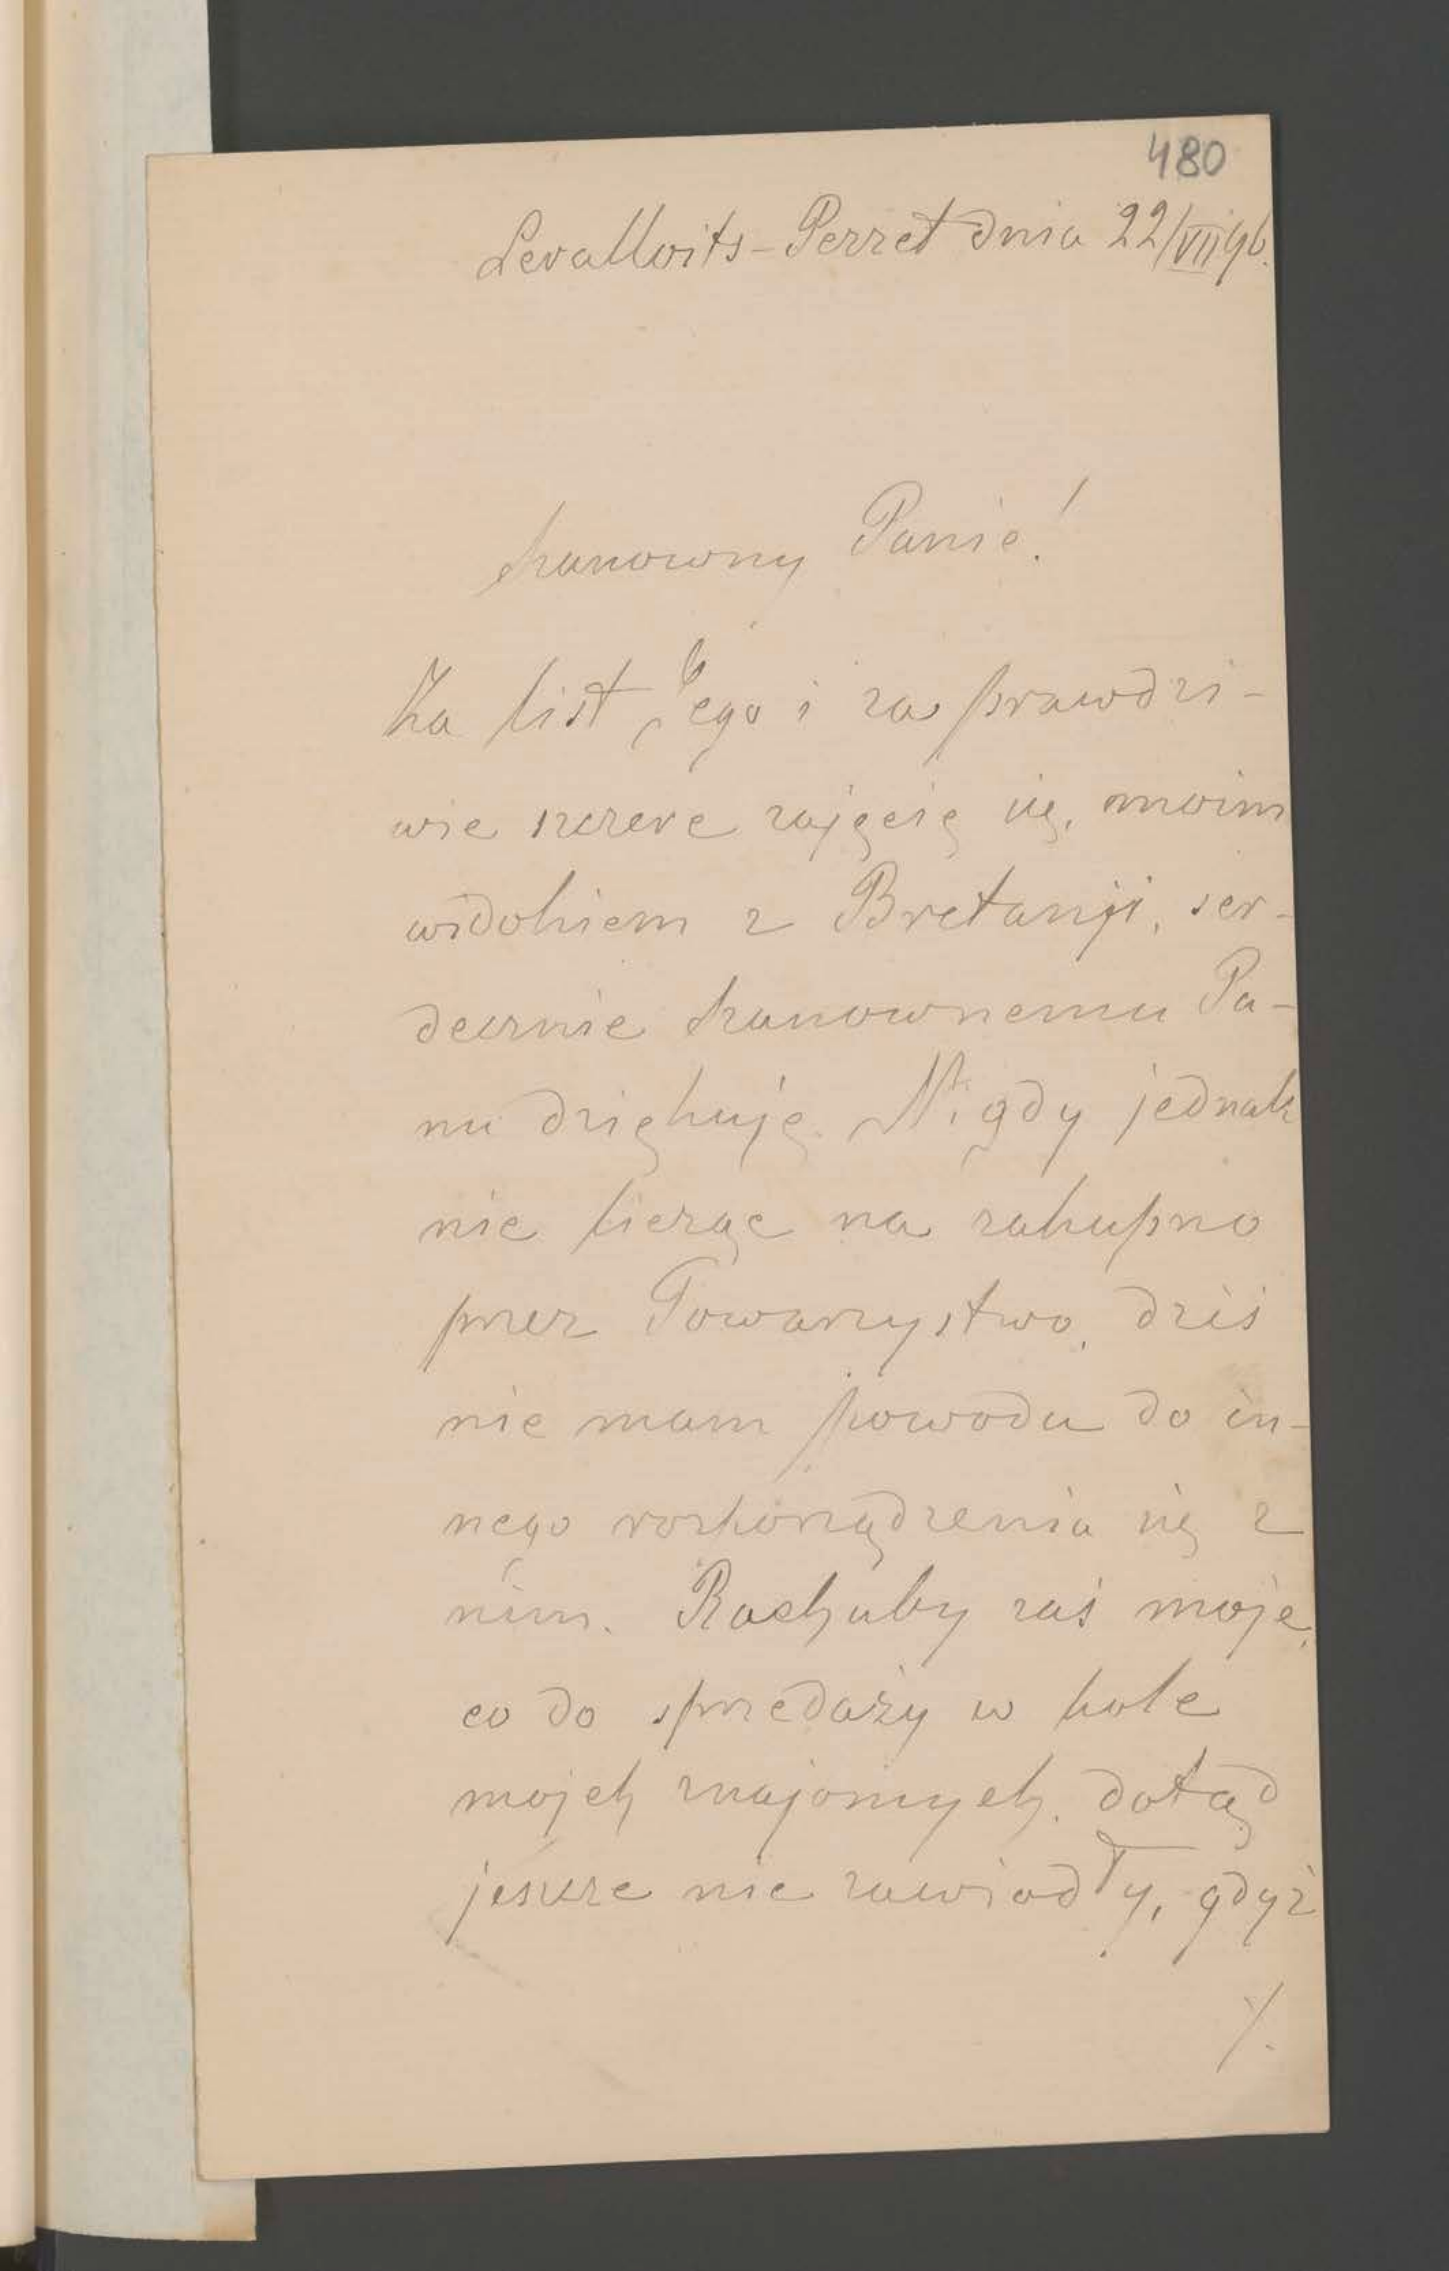 480
Levalloits-Perret dnia 22/VII 96.
Szanowny Panie!
Za list Jego i za prawdzi-
wie szczere zajęcię się, moim
widokiem z Bretanji, ser-
decznie Szanownemu Pa-
nu dziękuję. Nigdy jednak
nie licząc na zakupno
przez Towarzystwo, dziś
nie mam powodu do in-
nego rozporządzenia się z
nim. Rachuby zaś moje,
co do sprzedaży w kole
mojch znajomych, dotąd
jeszcze nie zawiodły, gdyż
/.